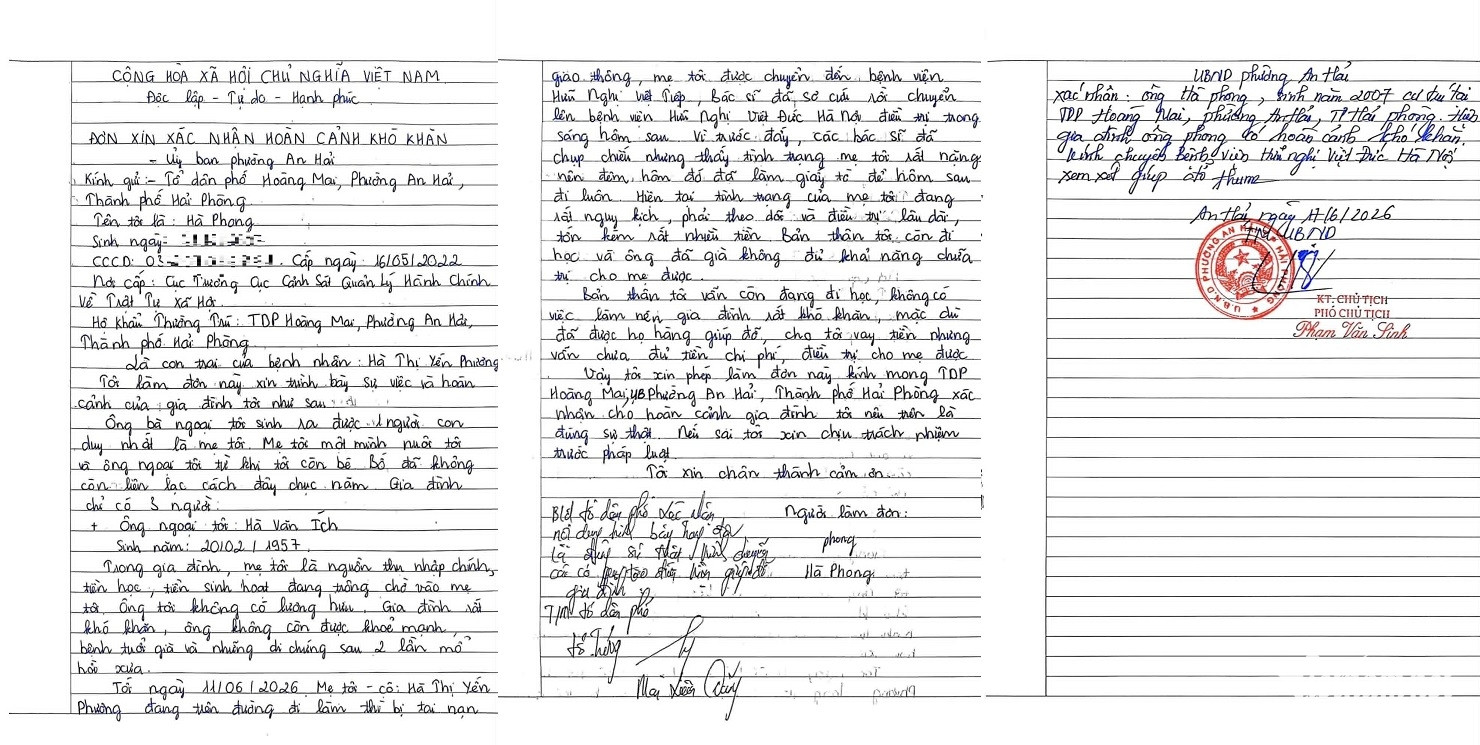 CỘNG HÒA XÃ HỘI CHỦ NGHĨA VIỆT NAM
Độc lập - Tự do - Hạnh phúc
ĐƠN XIN XÁC NHẬN HOÀN CẢNH KHÓ KHĂN
- Ủy ban phường An Hải
Kính gửi: - Tổ dân phố Hoàng Mai, Phường An Hải,
Thành phố Hải Phòng
Tên tôi là: Hà Phong
Sinh ngày:
CCCD: 03 Cấp ngày 16/05/2022
Nơi cấp: Cục Trưởng Cục Cảnh Sát Quản Lý Hành Chính
Về Trật Tự Xã Hội
Hộ khẩu Thường Trú: TDP Hoàng Mai, Phường An Hải,
Thành phố Hải Phòng
Là con trai của bệnh nhân: Hà Thị Yến Phương
Tôi làm đơn này xin trình bày sự việc và hoàn
cảnh của gia đình tôi như sau
Ông bà ngoại tôi sinh ra được 1 người con
duy nhất là mẹ tôi. Mẹ tôi một mình nuôi tôi
và ông ngoại tôi từ khi tôi còn bé. Bố đã không
còn liên lạc cách đây chục năm. Gia đình
chỉ có 3 người:
+ Ông ngoại tôi: Hà Văn Ích
Sinh năm: 20/02/1957.
Trong gia đình, mẹ tôi là nguồn thu nhập chính,
tiền học, tiền sinh hoạt đang trông chờ vào mẹ
tôi. Ông tôi không có lương hưu. Gia đình rất
khó khăn, ông không còn được khoẻ mạnh,
bệnh tuổi già và những di chứng sau 2 lần mổ
hồi xưa.
Tối ngày 11/06/2026. Mẹ tôi - cô: Hà Thị Yến
Phương đang trên đường đi làm thì bị tai nạn
giao thông, mẹ tôi được chuyển đến bệnh viện
Hữu Nghị Việt Tiệp, Bác sĩ đã sơ cứu rồi chuyển
lên bệnh viện Hữu Nghị Việt Đức Hà Nội điều trị trong
sáng hôm sau. Vì trước đấy, các bác sĩ đã
chụp chiếu nhưng thấy tình trạng mẹ tôi rất nặng
nên đêm hôm đó đã làm giấy tờ để hôm sau
đi luôn. Hiện tại tình trạng của mẹ tôi đang
rất nguy kịch, phải theo dõi và điều trị lâu dài,
tốn kém rất nhiều tiền. Bản thân tôi còn đi
học và ông đã già không đủ khả năng chữa
trị cho mẹ được.
Bản thân tôi vẫn còn đang đi học, không có
việc làm nên gia đình rất khó khăn, mặc dù
đã được họ hàng giúp đỡ, cho tôi vay tiền nhưng
vẫn chưa đủ tiền chi phí, điều trị cho mẹ được
Vậy tôi xin phép làm đơn này kính mong TDP
Hoàng Mai, UB Phường An Hải, Thành phố Hải Phòng xác
nhận cho hoàn cảnh gia đình tôi nêu trên là
đúng sự thật. Nếu sai tôi xin chịu trách nhiệm
trước pháp luật.
Tôi xin chân thành cảm ơn.
Người làm đơn:
phong
Hà Phong
tổ dân phố xác nhận
nội dung trình bày
là đúng sự thật
gia đình
T/M tổ dân phố
tổ trưởng
Mai Xuân
UBND phường An Hải
xác nhận: ông Hà Phong, sinh năm 2007 cư trú tại
TDP Hoàng Mai, phường An Hải, TP Hải Phòng. Hiện
gia đình ông Phong có hoàn cảnh khó khăn.
Kính chuyển Bệnh viện Hữu nghị Việt Đức Hà Nội
xem xét giúp đỡ
An Hải, ngày 17/6/2026
TM UBND
U.B.N.D PHƯỜNG AN HẢI
KT. CHỦ TỊCH
PHÓ CHỦ TỊCH
Phạm Văn Sinh